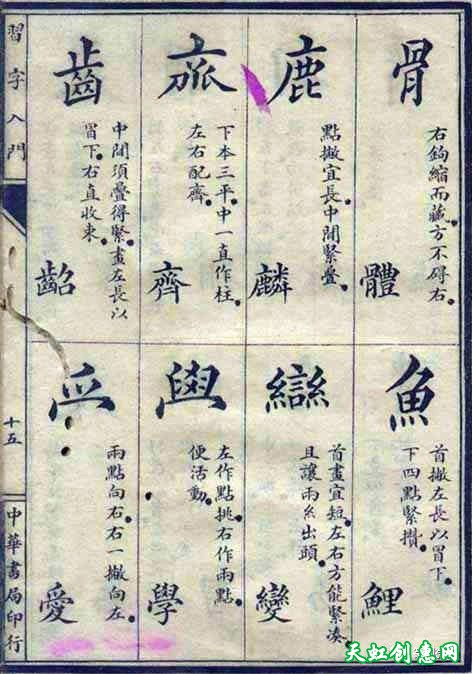 骨
右鉤縮而藏。方不碍右。
體
鹿
點撇宜長。中間緊疊。
麟
下本三平。中一直作柱。
左右配齊。
齊
齒
中間項疊得緊。畫左長以
冒下。右直收束。
齠
魚
首撇左長以冒下。
下四點緊攢。
鯉
䜌
首畫宜短。左右方能緊湊。
且讓兩糸出頭。
變
左作點挑。右作兩點。
便活動。
學
兩點向右。右一撇向左。
愛
習字入門
十五
中華書局印行
天虹创惠网